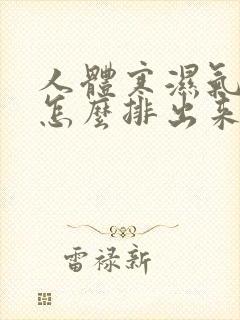 人體寒濕氣
怎麼排出來
雷禄新